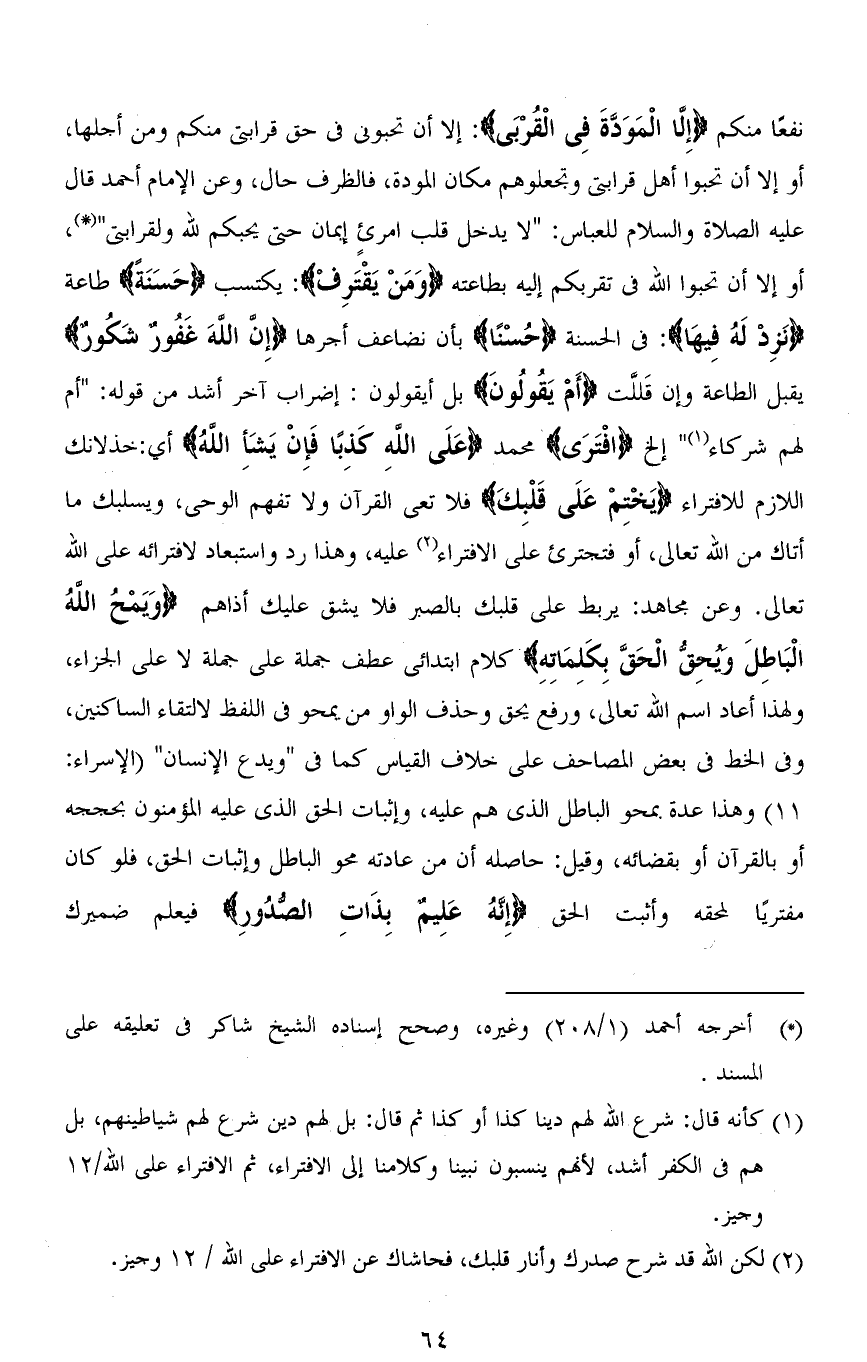 نفعًا منكم ﴿إِلَّا الْمَوَدَّةَ فِى الْقُرْبَى﴾: إلا أن تحبونى فى حق قرابتى منكم ومن أجلها،
أو إلا أن تحبوا أهل قرابتى وتجعلوهم مكان المودة، فالظرف حال، وعن الإمام أحمد قال
عليه الصلاة والسلام للعباس: "لا يدخل قلب امرئٍ إيمان حتى يحبكم لله ولقرابتى"(*)،
أو إلا أن تحبوا الله فى تقربكم إليه بطاعته ﴿وَمَنْ يَقْتَرِفْ﴾: يكتسب ﴿حَسَنَةً﴾ طاعة
﴿نَزِدْ لَهُ فِيهَا﴾: فى الحسنة ﴿حُسْنًا﴾ بأن نضاعف أجرها ﴿إِنَّ اللَّهَ غَفُورٌ شَكُورٌ﴾
يقبل الطاعة وإن قَللَّت ﴿أَمْ يَقُولُونَ﴾ بل أيقولون : إضراب آخر أشد من قوله: "أم
لهم شركاء(١)" إلخ ﴿افْتَرَى﴾ محمد ﴿عَلَى اللَّهِ كَذِبًا فَإِنْ يَشَأِ اللَّهُ﴾ أي:خذلانك
اللازم للافتراء ﴿يَخْتِمْ عَلَى قَلْبِكَ﴾ فلا تعى القرآن ولا تفهم الوحى، ويسلبك ما
أتاك من الله تعالى، أو فتجترئ على الافتراء(٢) عليه، وهذا رد واستبعاد لافترائه على الله
تعالى. وعن مجاهد: يربط على قلبك بالصبر فلا يشق عليك أذاهم ﴿وَيَمْحُ اللَّهُ
الْبَاطِلَ وَيُحِقُّ الْحَقَّ بِكَلِمَاتِهِ﴾ كلام ابتدائى عطف جملة على جملة لا على الجزاء،
ولهذا أعاد اسم الله تعالى، ورفع يحق وحذف الواو من يمحو فى اللفظ لالتقاء الساكنين،
وفى الخط فى بعض المصاحف على خلاف القياس كما فى "ويدع الإنسان" (الإسراء:
١١) وهذا عدة بمحو الباطل الذى هم عليه، وإثبات الحق الذى عليه المؤمنون بحججه
أو بالقرآن أو بقضائه، وقيل: حاصله أن من عادته محو الباطل وإثبات الحق، فلو كان
مفتريًا لمحقه وأثبت الحق ﴿إِنَّهُ عَلِيمٌ بِذَاتِ الصُّدُورِ﴾ فيعلم ضميرك
(*) أخرجه أحمد (٢٠٨/١) وغيره، وصحح إسناده الشيخ شاكر فى تعليقه على
المسند .
(١) كأنه قال: شرع الله لهم دينا كذا أو كذا ثم قال: بل لهم دين شرع لهم شياطينهم، بل
هم فى الكفر أشد، لأنهم ينسبون نبينا وكلامنا إلى الافتراء، ثم الافتراء على الله/١٢
وجيز.
(٢) لكن الله قد شرح صدرك وأنار قلبك، فحاشاك عن الافتراء على الله / ١٢ وجيز.
٦٤